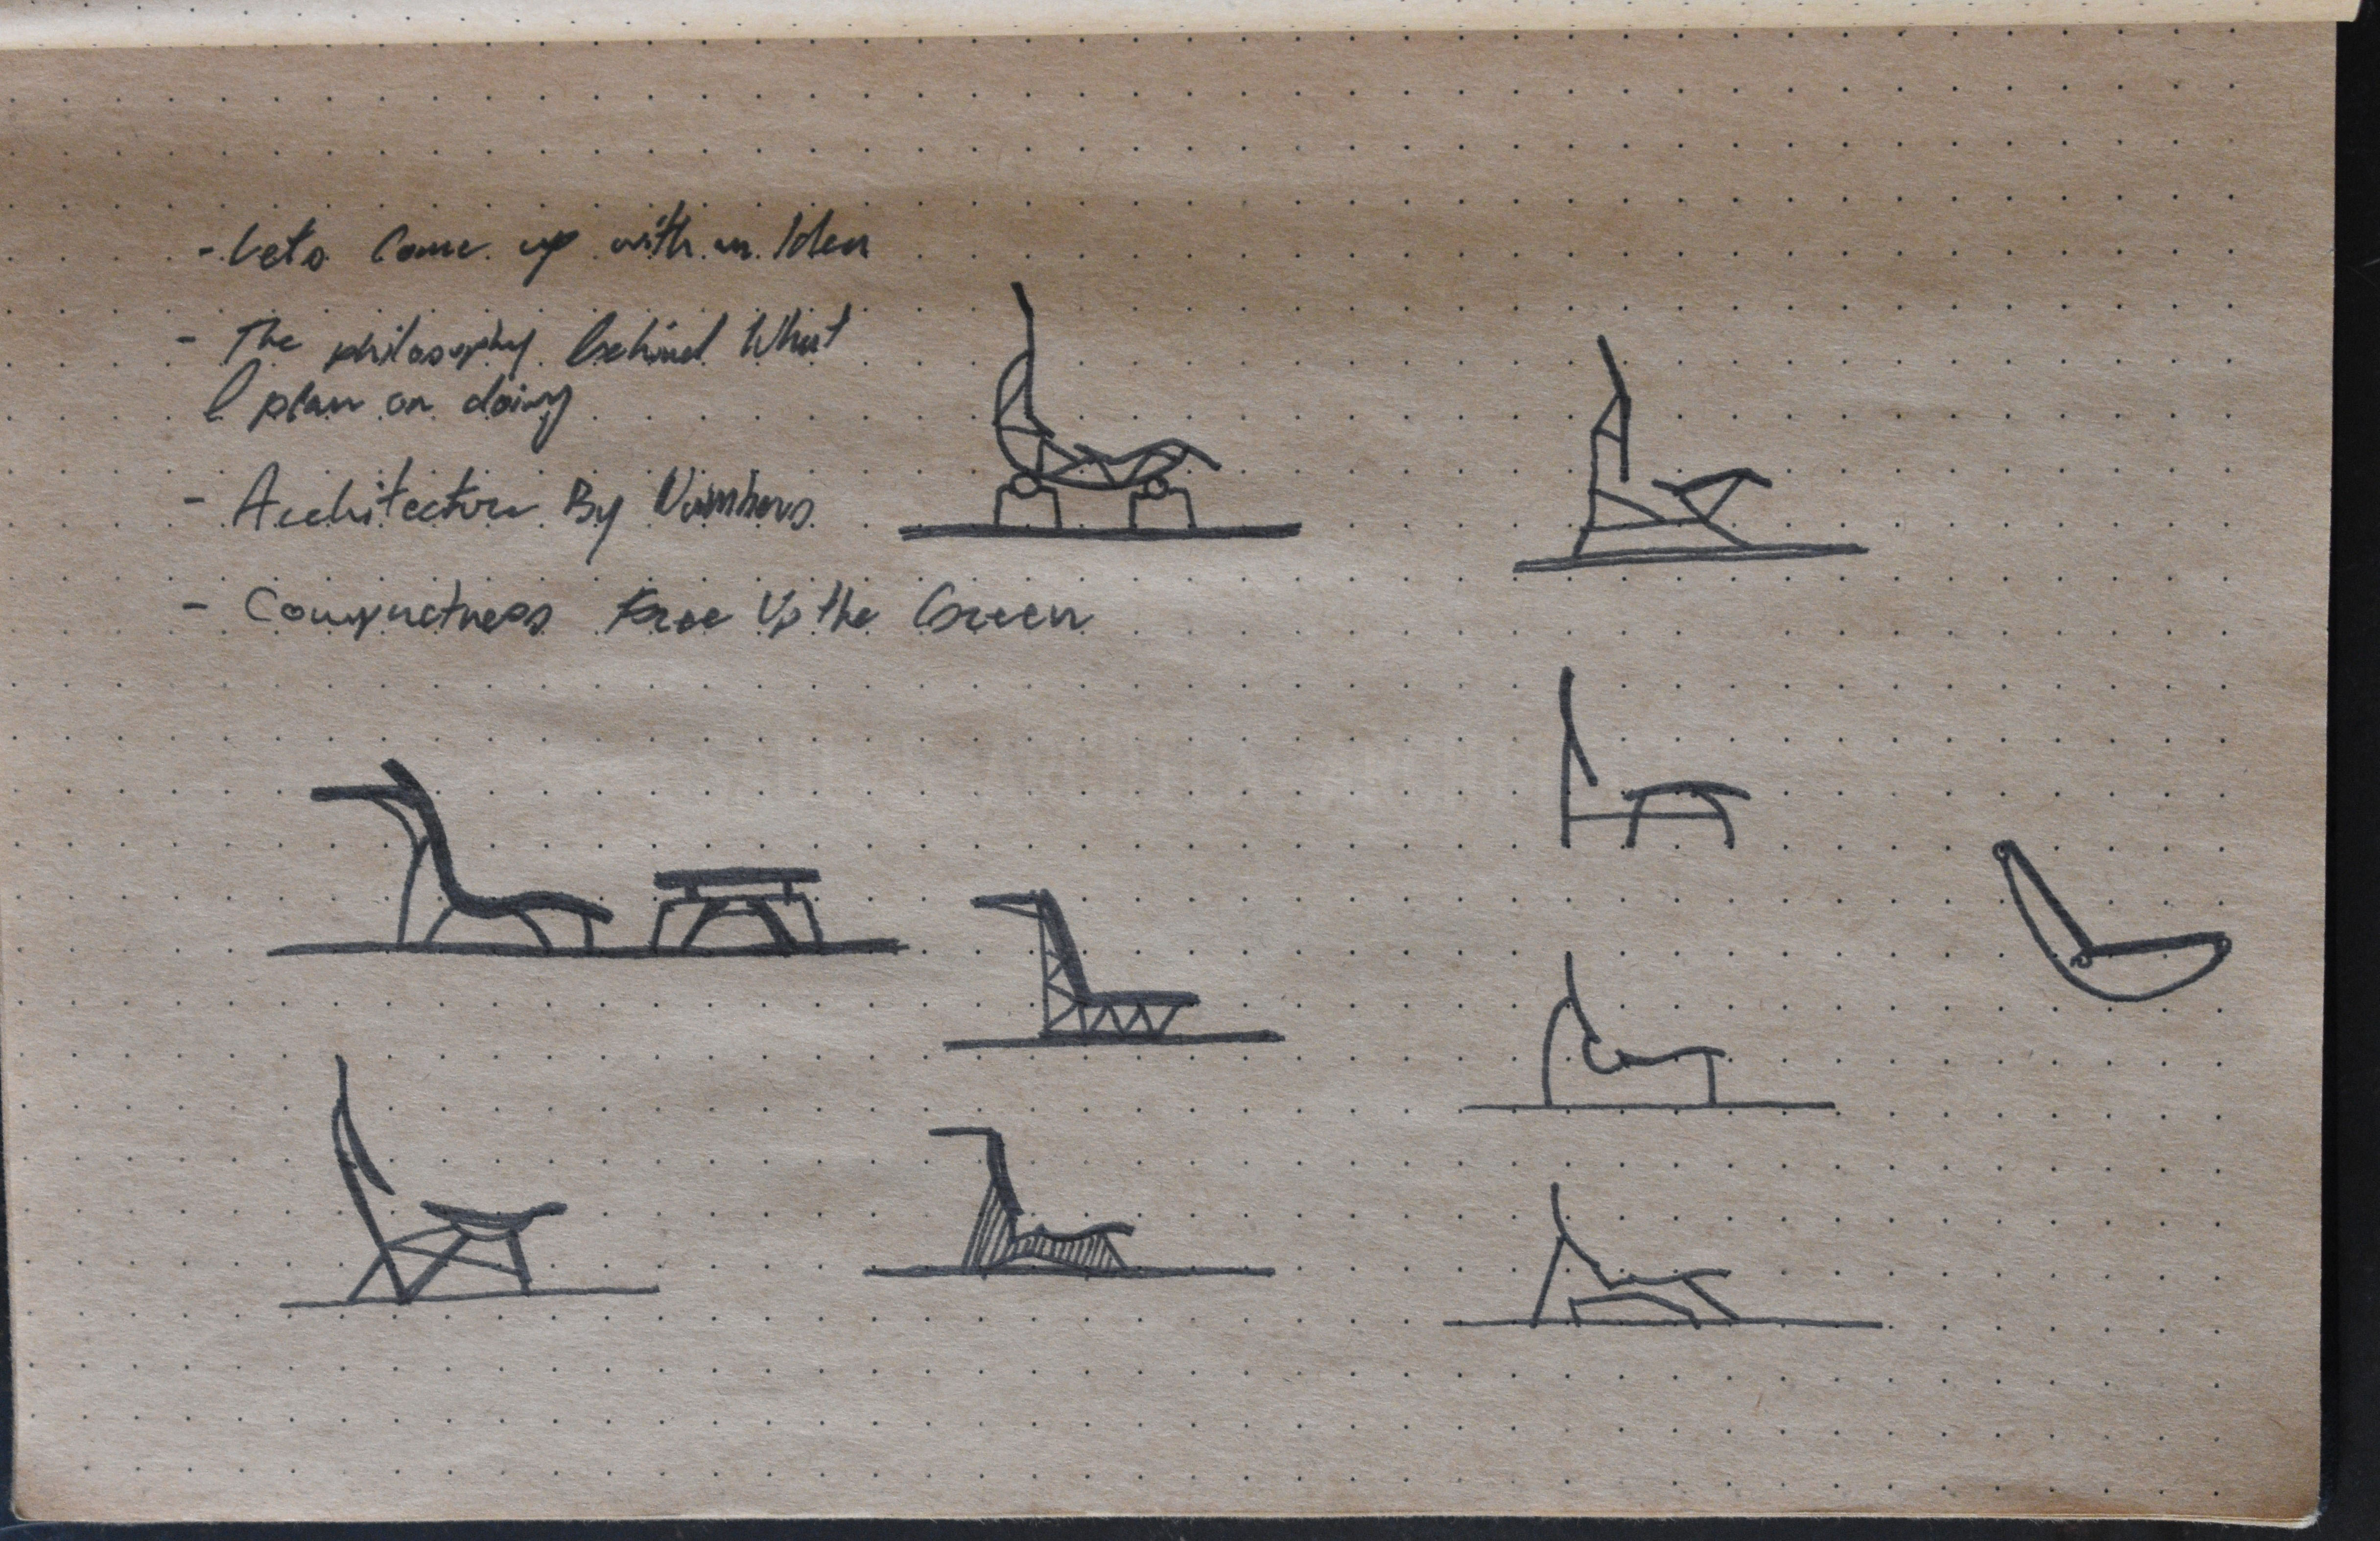 - Lets Come up with an Idea
- The philosophy behind What
I plan on doing
- Architecture By Numbers
- Compactness Free Up the Green